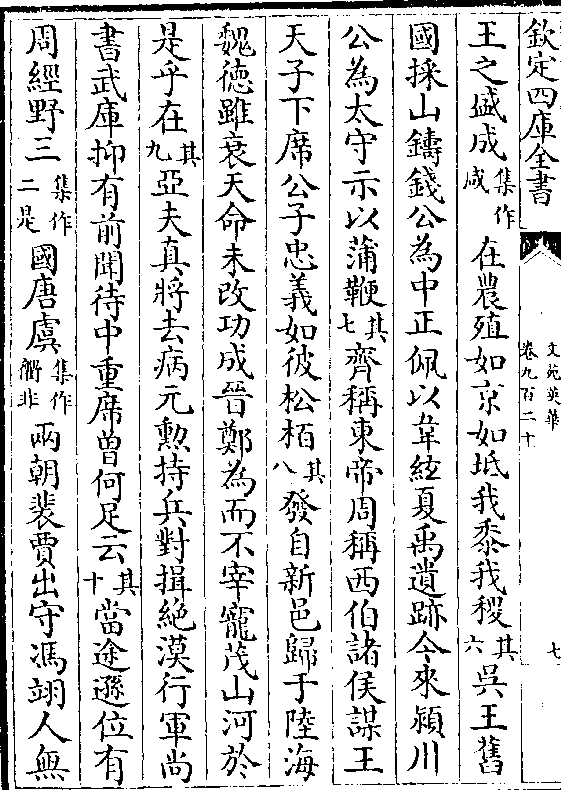 欽定四庫全書
文苑英華
卷九百二十
七
王之盛成集作咸在農殖如京如坻我黍我稷其六吳王舊
國採山鑄錢公為中正佩以韋絃夏禹遺跡今來潁川
公為太守示以蒲鞭其七齊稱東帝周稱西伯諸侯謀王
天子下席公子忠義如彼松栢其八發自新邑歸于陸海
魏德雖衰天命未改功成晉鄭為而不宰寵茂山河於
是乎在其九亞夫真將去病元勲持兵對揖絕漠行軍尚
書武庫抑有前聞待中重席曽何足云其十當途遜位有
周經野三集作二是國唐虞集作衛非兩朝裴賈出守馮翊人無